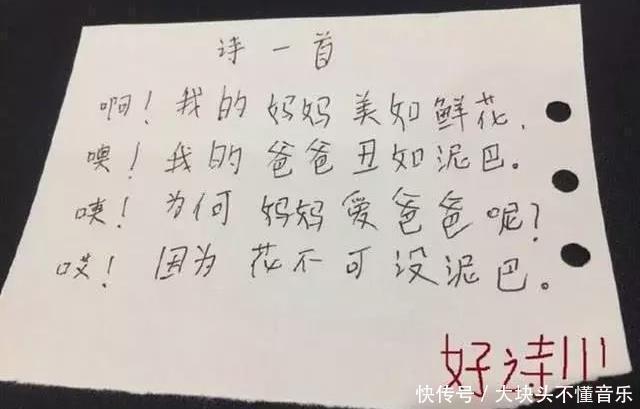 诗一首
啊！我的妈妈美如鲜花，
噢！我的爸爸丑如泥巴。
咦！为何妈妈爱爸爸呢？
哎！因为花不可没泥巴。
好诗!!!
快传号 / 大块头不懂音乐